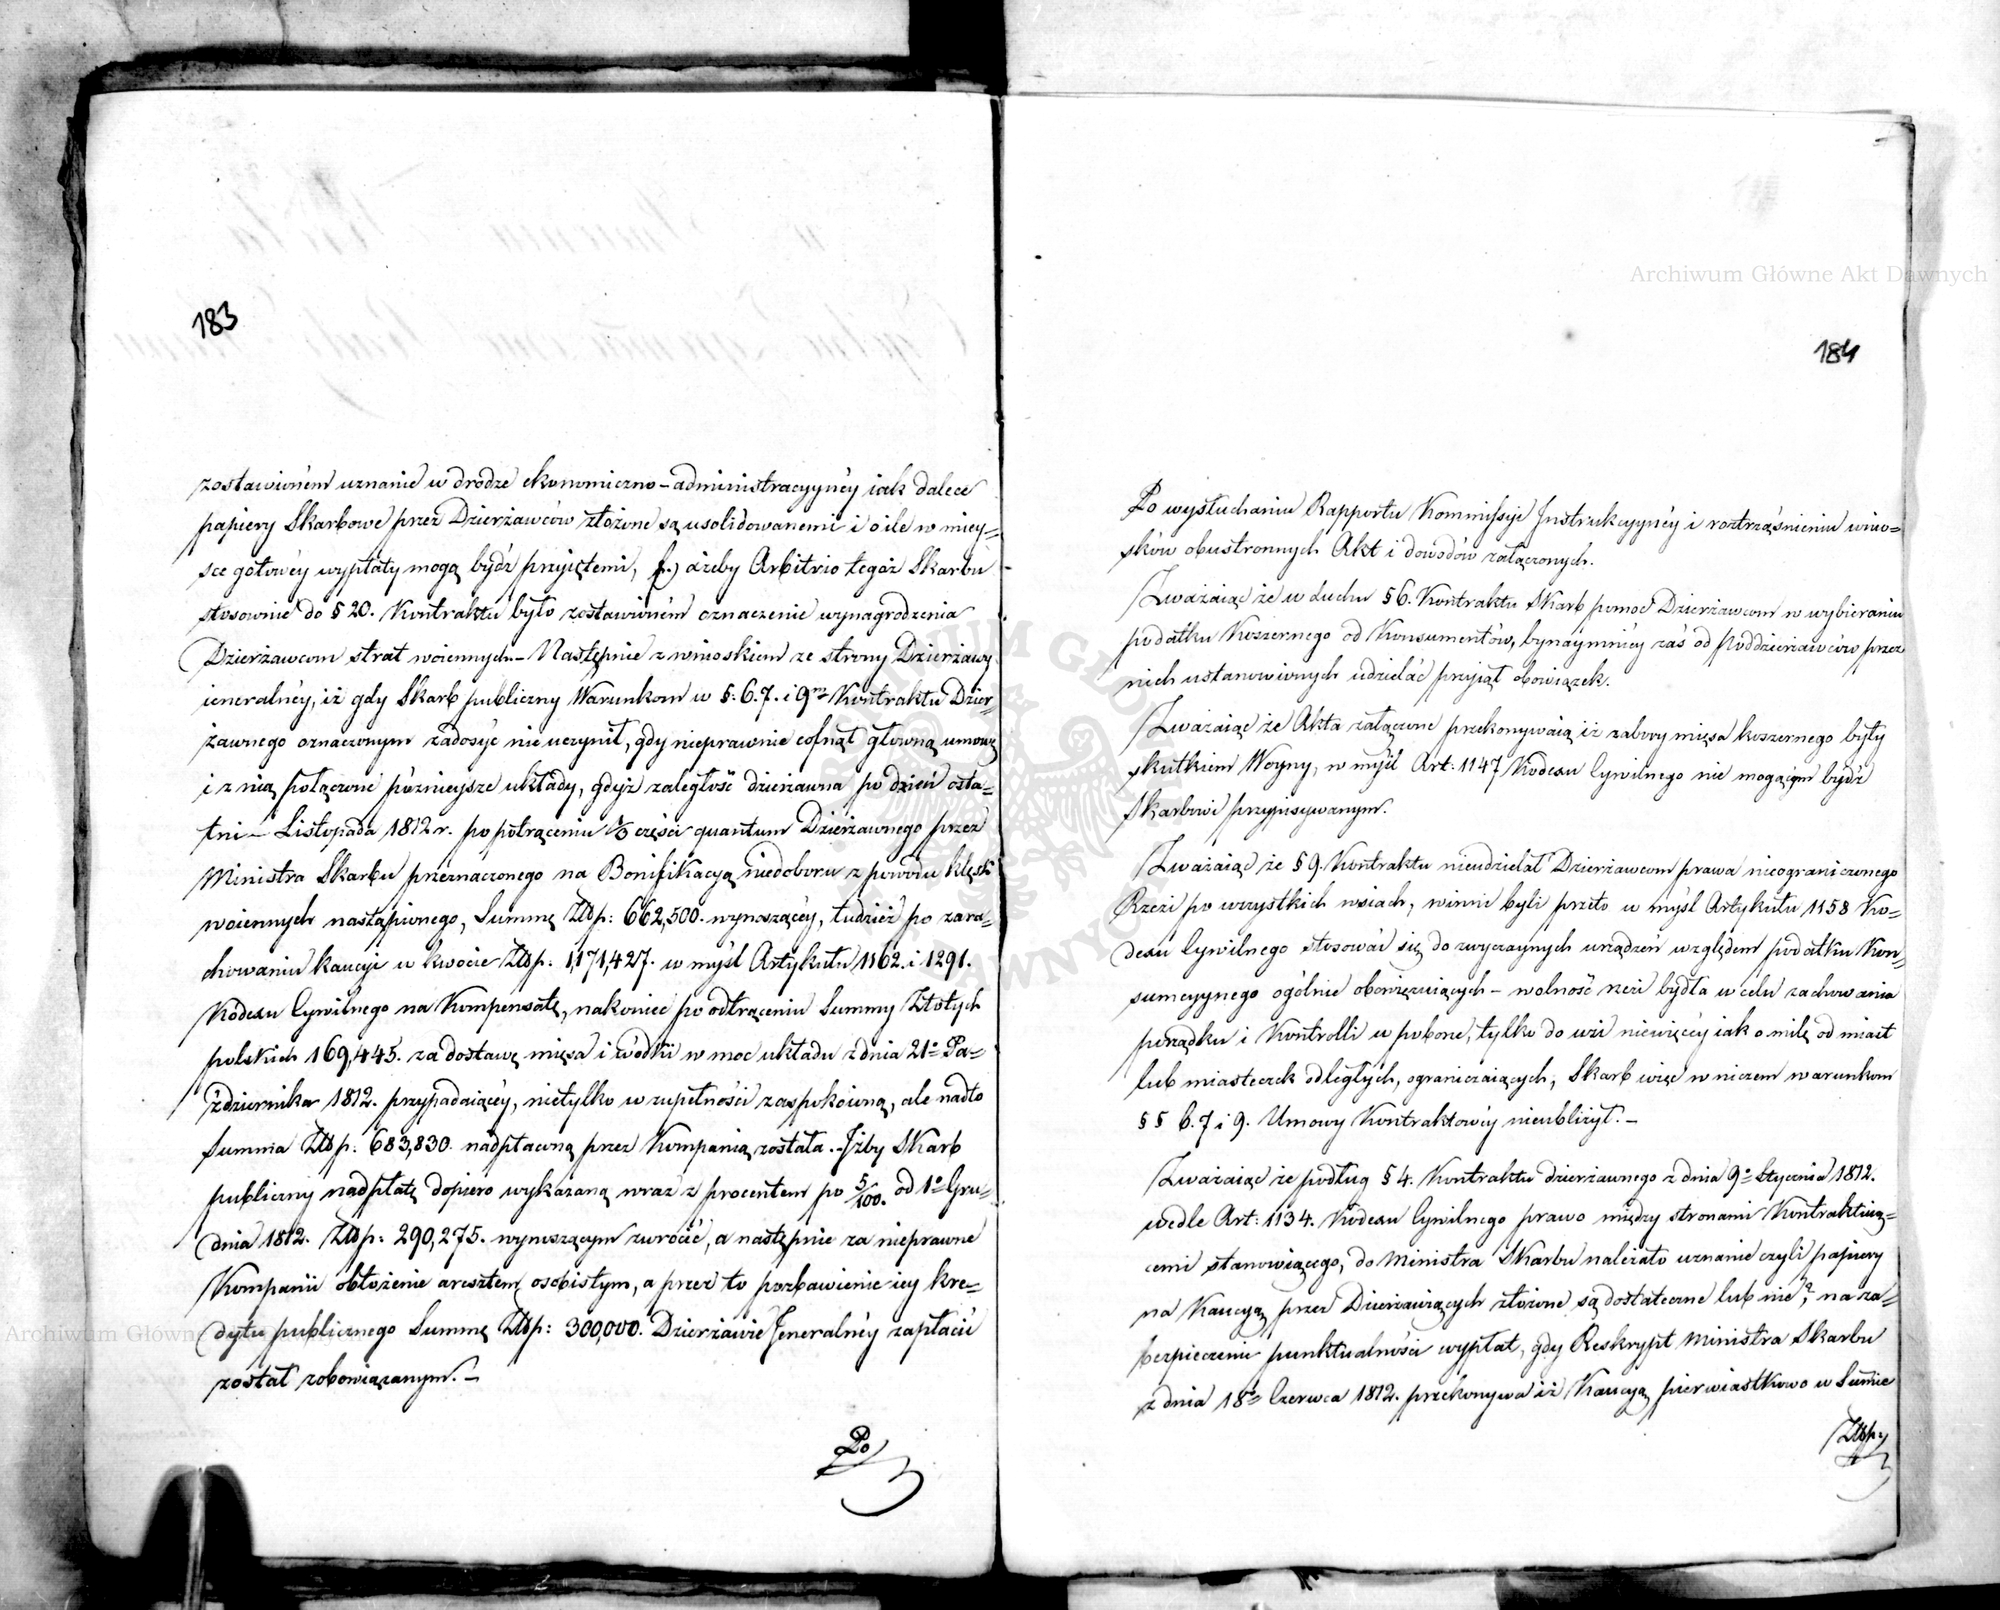 183
zostawionem uznanie w drodze ekonomiczno-administracyyney iak dalece
papiery Skarbowe przez Dzierżawców złożone są usolidowanemi i o ile w miey-
sce gotowey wypłaty mogą bydź przyiętemi, f.) ażeby Arbitrio tegoż Skarbu
stosownie do § 20. Kontraktu było zostawionem oznaczenie wynagrodzenia
Dzierżawcom strat woiennych. – Następnie z wnioskiem ze strony Dzierżawy
ieneralney, iż gdy Skarb publiczny Warunkom w §. 6. 7. i 9m Kontraktu Dzier-
żawnego oznaczonym zadosyć nie uczynił, gdy nieprawnie cofnął główną umowę
i z nią połączone późnieysze układy, gdyż zaległość dzierżawna po dzień osta-
tni – Listopada 1812 r. po potrąceniu części quantum Dzierżawnego przez
Ministra Skarbu przeznaczonego na Bonifikacyą niedoboru z powodu klęsk
woiennych nastąpionego, Summę Złłp: 662,500. wynoszącey, tudzież po zara-
chowaniu kaucyi w kwocie Złłp: 1,171,427. w myśl Artykułu 1162. i 1291.
Kodexu Cywilnego na Kompensatę, nakoniec po odtrąceniu Summy Złotych
polskich 169,445. za dostawę mięsa i wódki w moc układu z dnia 21o Pa-
ździernika 1812. przypadaiącey, nietylko w zupełności zaspokoioną, ale nadto
Summa Złłp: 683,830. nadpłaconą przez Kompanią została. – Iżby Skarb
publiczny nadpłatę dopiero wykazaną wraz z procentem po 5/100. od 1o Gru-
dnia 1812. Złłp: 290,275. wynoszącym zwrócić, a następnie za nieprawne
Kompanii obłożenie aresztem osobistym, a przez to pozbawienie iey kre-
dytu publicznego Summę Złłp: 300,000. Dzierżawie Jeneralney zapłacić
został zobowiązanym. –
Po
184
Po wysłuchaniu Rapportu Kommissyi Instrukcyyney i roztrząśnieniu wnio-
sków obustronnych Akt i dowodów załączonych.
Zważaiąc że w duchu § 6. Kontraktu Skarb pomoc Dzierżawcom w wybieraniu
podatku Koszernego od Konsumentów, bynaymniey zaś od Poddzierżawców przez
nich ustanowionych udzielać przyiął obowiązek.
Zważaiąc że Akta załączone przekonywaią iż zabory mięsa koszernego były
skutkiem Woyny, w myśl Art: 1147 Kodexu Cywilnego nie mogącym bydź
Skarbowi przypisywanym.
Zważaiąc że § 9. Kontraktu nieudzielał Dzierżawcom prawa nieograniczonego
Rzezi po wszystkich wsiach, winni byli przeto w myśl Artykułu 1158 Ko-
dexu Cywilnego stosować się do zwyczaynych urządzeń względem podatku Kon-
sumcyynego ogólnie obowięzuiących – wolność rzezi bydła w celu zachowania
porządku i Kontrolli w poborze, tylko do wsi niewięcey iak o milę od miast
lub miasteczek odległych, ograniczaiących, Skarb więc w niczem warunkom
§ § 6. 7 i 9. Umowy Kontraktowey nieubliżył. –
Zważaiąc że podług § 4. Kontraktu dzierżawnego z dnia 9o Stycznia 1812.
wedle Art: 1134. Kodexu Cywilnego prawo między stronami Kontraktuią-
cemi stanowiącego, do Ministra Skarbu należało uznanie czyli papiery
na Kaucyą przez Dzierżawiących złożone są dostateczne lub nie?, na za-
bezpieczenie punktualności wypłat, gdy Reskrypt Ministra Skarbu
z dnia 18o Czerwca 1812. przekonywa iż Kaucyą pierwiastkowo w Summie
Złłp:
Archiwum Główne Akt Dawnych